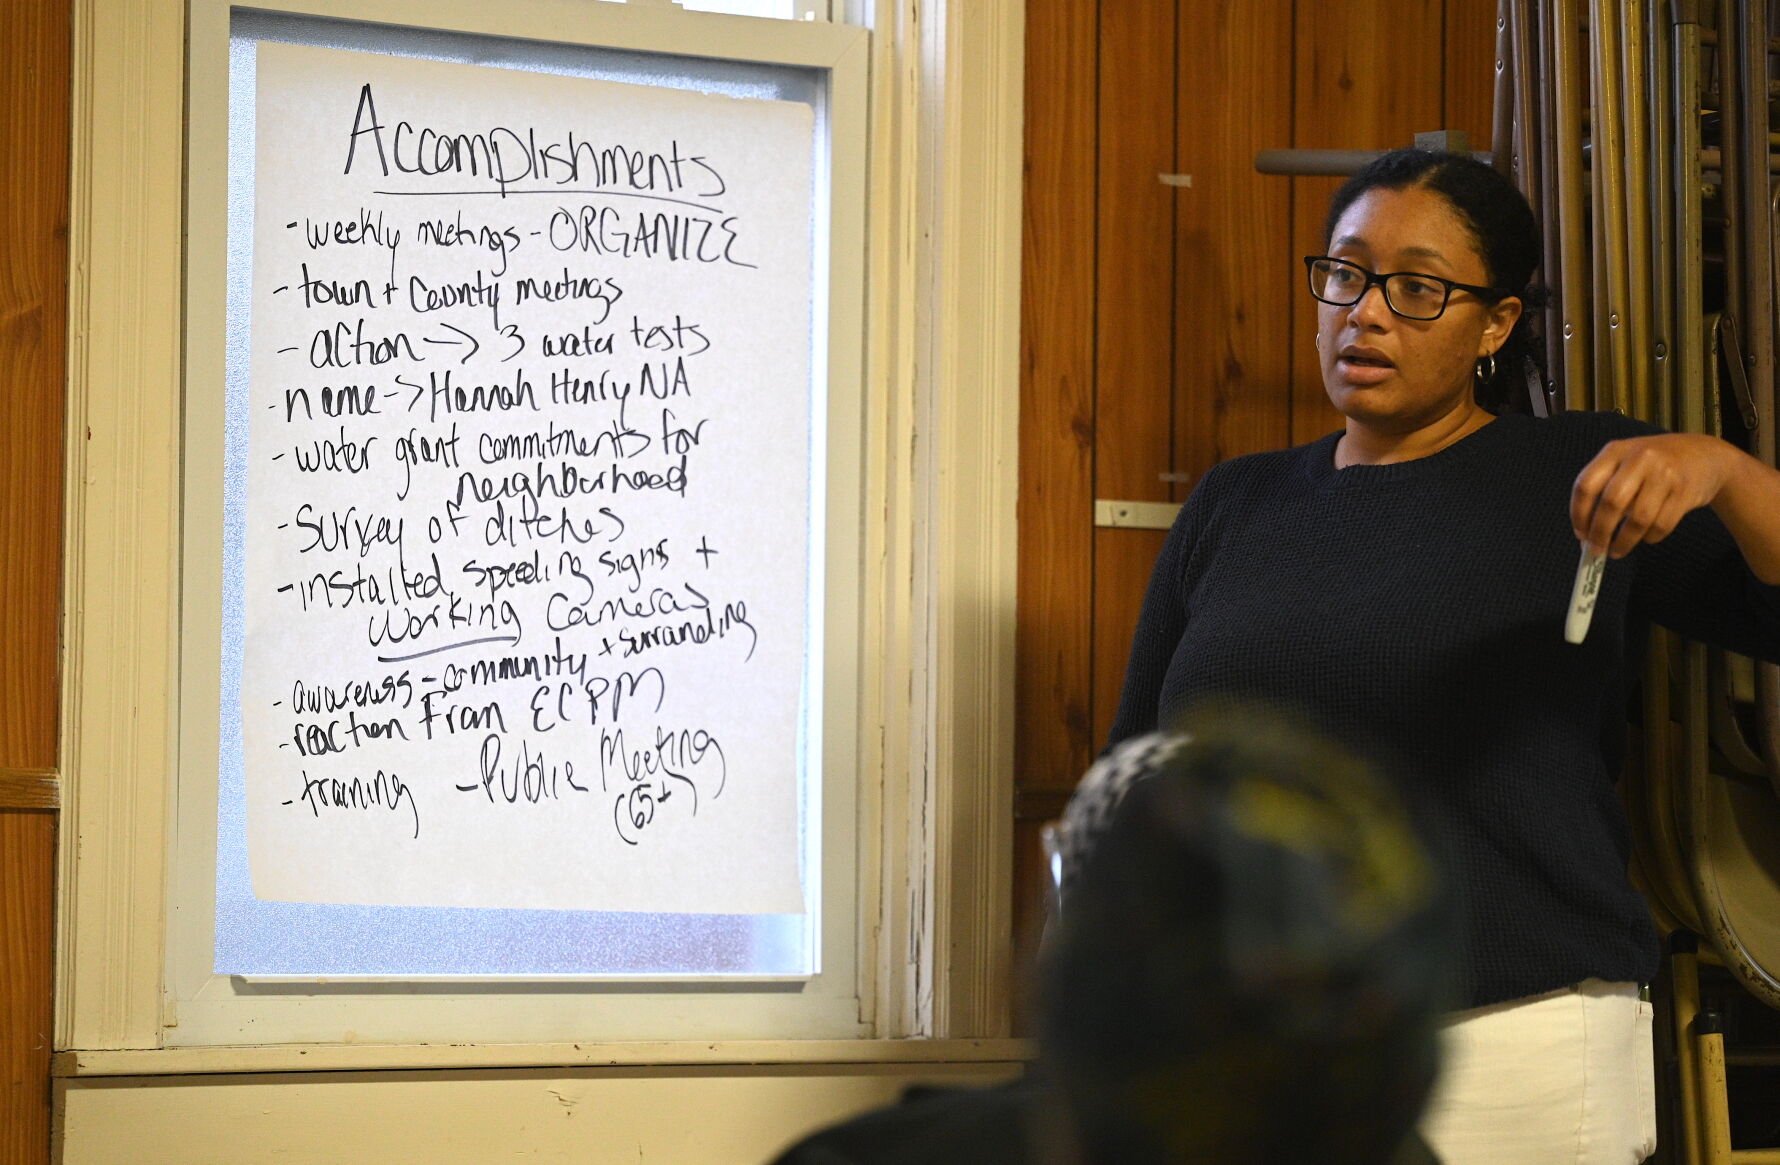 Accomplishments
- weekly meetings - ORGANIZE
- town + County meetings
- action -> 3 water tests
- name -> Hannah Henry NA
- water grant commitments for
neighborhood
- Survey of ditches
- installed speeding signs +
working Cameras
- awareness - community + surranding
- reaction from ECPPM
- training - Public Meeting
(65+)